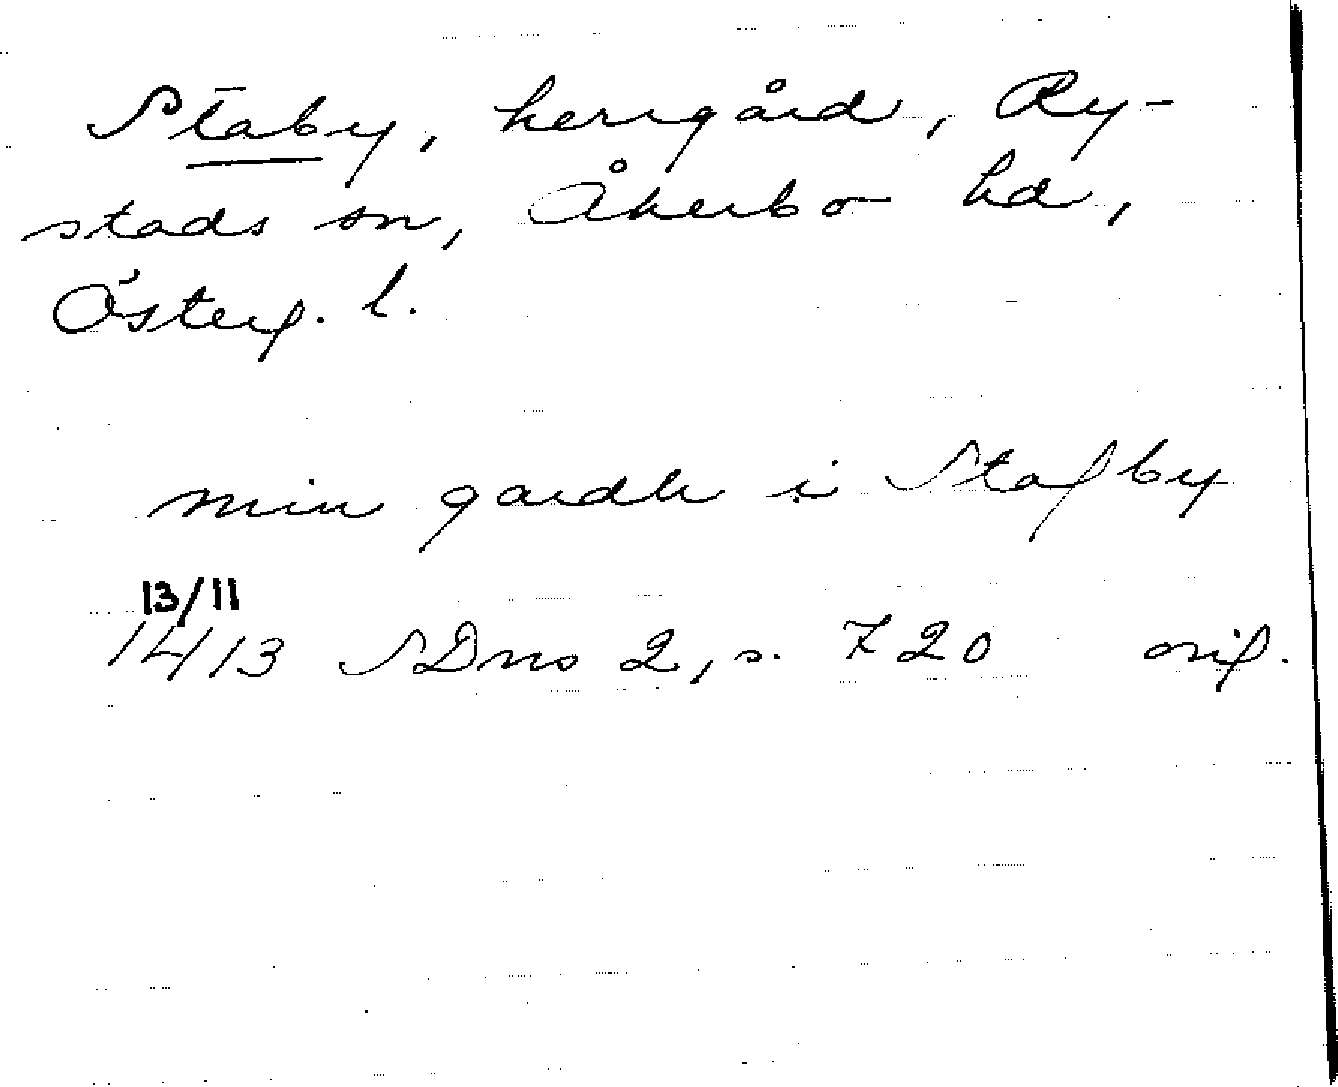 Staby, herrgård, Ry-
stads sn, Åkerbo hd,
Österg. l.
min gardh i Stafby
13/11
1413 SDns 2, s. 720 orig.